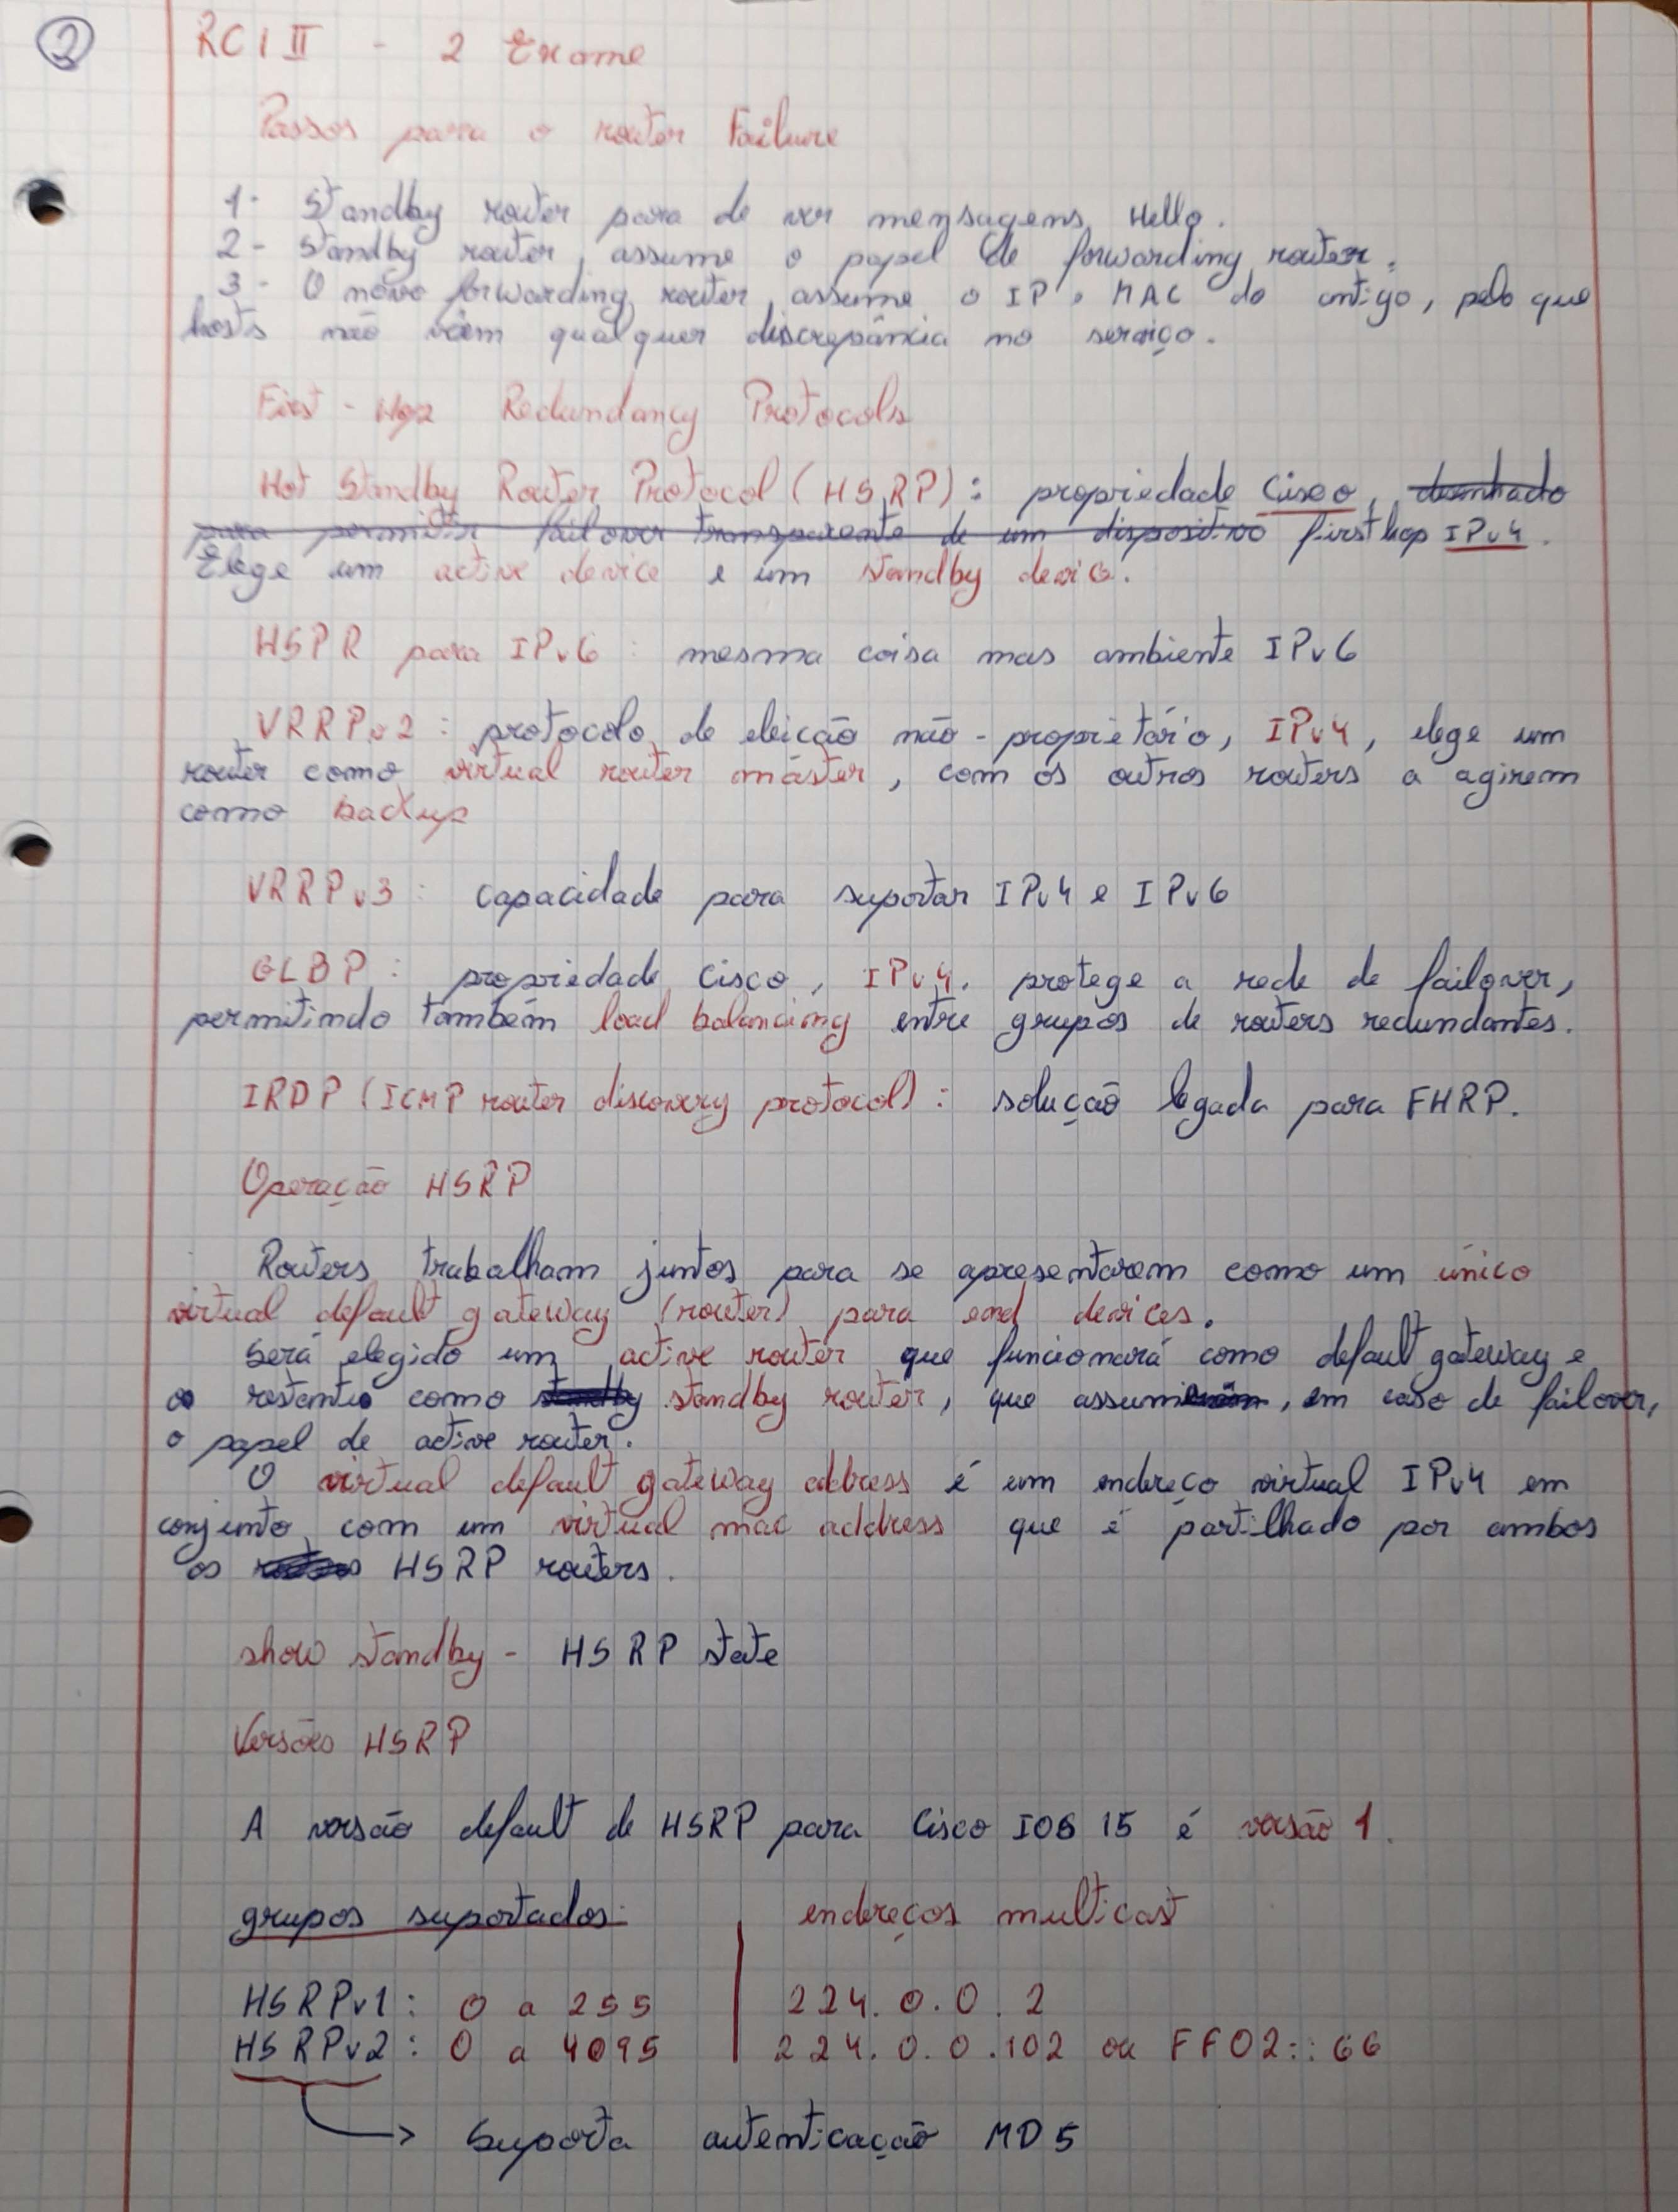 2
RCI II - 2 Exame
Passos para o router Failure
1- Standby router para de ver mensagens Hello.
2- Standby router assume o papel de forwarding router.
3- O novo forwarding router assume o IP e MAC do antigo, pelo que
hosts não vêem qualquer discrepância no serviço.
First-Hop Redundancy Protocols
Hot Standby Router Protocol (HSRP): propriedade Cisco, desenhado
para permitir failover transparente de um dispositivo first hop IPv4.
Elege um active device e um standby device.
HSPR para IPv6: mesma coisa mas ambiente IPv6
VRRPv2: protocolo de eleição não-proprietário, IPv4, elege um
router como virtual router máster, com os outros routers a agirem
como backup
VRRPv3: capacidade para suportar IPv4 e IPv6
GLBP: propriedade Cisco, IPv4, protege a rede de failover,
permitindo também load balancing entre grupos de routers redundantes.
IRDP (ICMP router discovery protocol): solução legada para FHRP.
Operação HSRP
Routers trabalham juntos para se apresentarem como um único
virtual default gateway (router) para end devices.
Será elegido um active router que funcionará como default gateway e
o restante como standby standby router, que assumirá, em caso de failover,
o papel de active router.
O virtual default gateway address é um endereço virtual IPv4 em
conjunto com um virtual mac address que é partilhado por ambos
os HSRP routers.
show standby - HSRP state
Versões HSRP
A versão default de HSRP para Cisco IOS 15 é versão 1.
grupos suportados: endereços multicast
HSRPv1: 0 a 255 224.0.0.2
HSRPv2: 0 a 4095 224.0.0.102 ou FF02::66
Suporta autenticação MD5